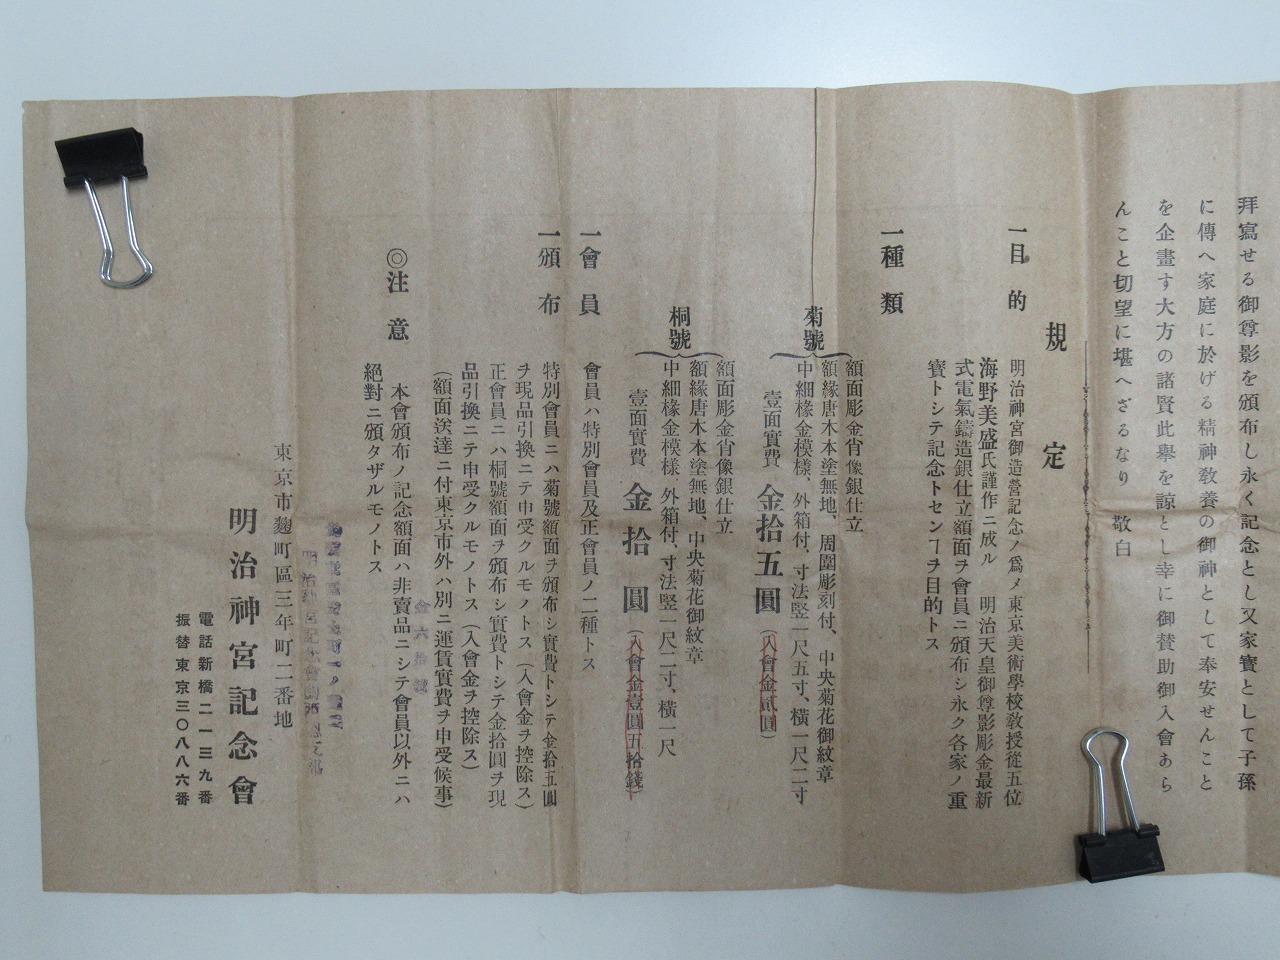 拜寫せる御尊影を頒布し永く記念とし又家寶として子孫
に傳へ家庭に於げる精神敎養の御神として奉安せんこと
を企畫す大方の諸賢此擧を諒とし幸に御賛助御入會あら
んこと切望に堪へざるなり　敬白
規定
一目的
明治神宮御造營記念ノ爲メ東京美術學校敎授從五位
海野美盛氏謹作ニ成ル　明治天皇御尊影彫金最新
式電氣鑄造銀仕立額面ヲ會員ニ頒布シ永ク各家ノ重
寶トシテ記念トセンヿヲ目的トス
一種類
菊號
額面彫金肖像銀仕立
額緣唐木本塗無地、周圍彫刻付、中央菊花御紋章
中細椽金模樣、外箱付、寸法竪一尺五寸、橫一尺二寸
壹面實費　金拾五圓（入會金貳圓）
桐號
額面彫金肖像銀仕立
額緣唐木本塗無地、中央菊花御紋章
中細椽金模樣、外箱付、寸法竪一尺二寸、橫一尺
壹面實費　金拾圓（入會金壹圓五拾錢）
一會員
會員ハ特別會員及正會員ノ二種トス
一頒布
特別會員ニハ菊號額面ヲ頒布シ實費トシテ金拾五圓
ヲ現品引換ニテ申受クルモノトス（入會金ヲ控除ス）
正會員ニハ桐號額面ヲ頒布シ實費トシテ金拾圓ヲ現
品引換ニテ申受クルモノトス（入會金ヲ控除ス）
（額面送達ニ付東京市外ハ別ニ運賃實費ヲ申受候事）
◎注意
本會頒布ノ記念額面ハ非賣品ニシテ會員以外ニハ
絕對ニ頒タザルモノトス
金六拾錢
明治神宮記念會
東京市麴町區三年町二番地
明治神宮記念會
電話新橋二一三九番
振替東京三〇八八六番